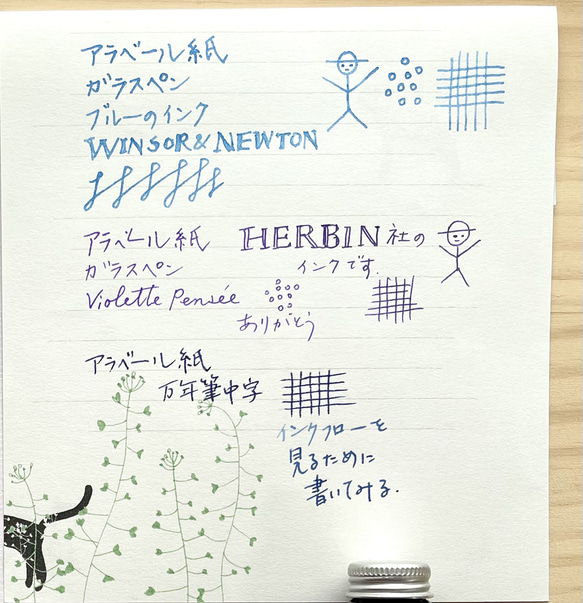 アラベール紙
ガラスペン
ブルーのインク
WINSOR & NEWTON
アラベール紙 HERBIN社の
ガラスペン インクです.
Violette Pensée
ありがとう
アラベール紙
万年筆中字
インクフローを
見るために
書いてみる.